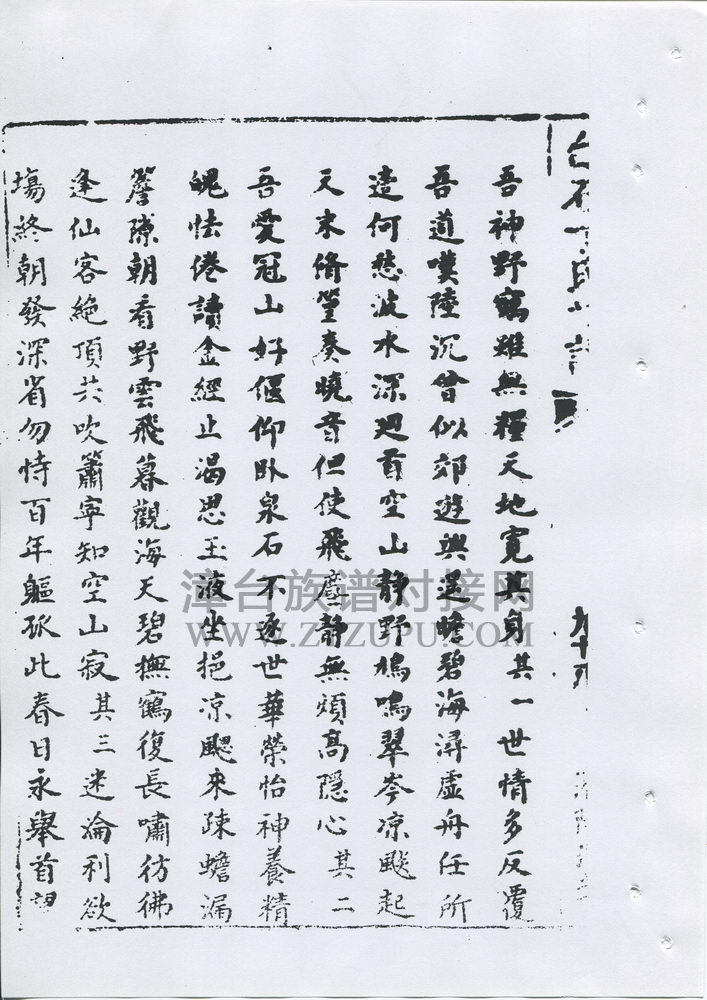 吾神野鶴雖無糧天地寬其身其一世情多反覆
吾道嘆陸沉曾似郊遊興逞瞻碧海潯虛舟任所
遣何愁波水深廻首空山静野鳩鳴翠岑凉颷起
天末脩篁奏曉音但使飛塵静無煩高隱心其二
吾愛冠山好偃仰卧泉石不逐世華榮怡神養精
魄怯倦讀金經止渴思玉液坐挹凉颸來疎蟾漏
簷隙朝看野雲飛暮觀海天碧撫鶴復長嘯彷彿
逢仙客絶頂共吹簫寧知空山寂其三迷淪利欲
場終朝發深省勿恃百年軀玩此春日永舉首望
津台族谱对接网
WWW.ZTZUPU.COM